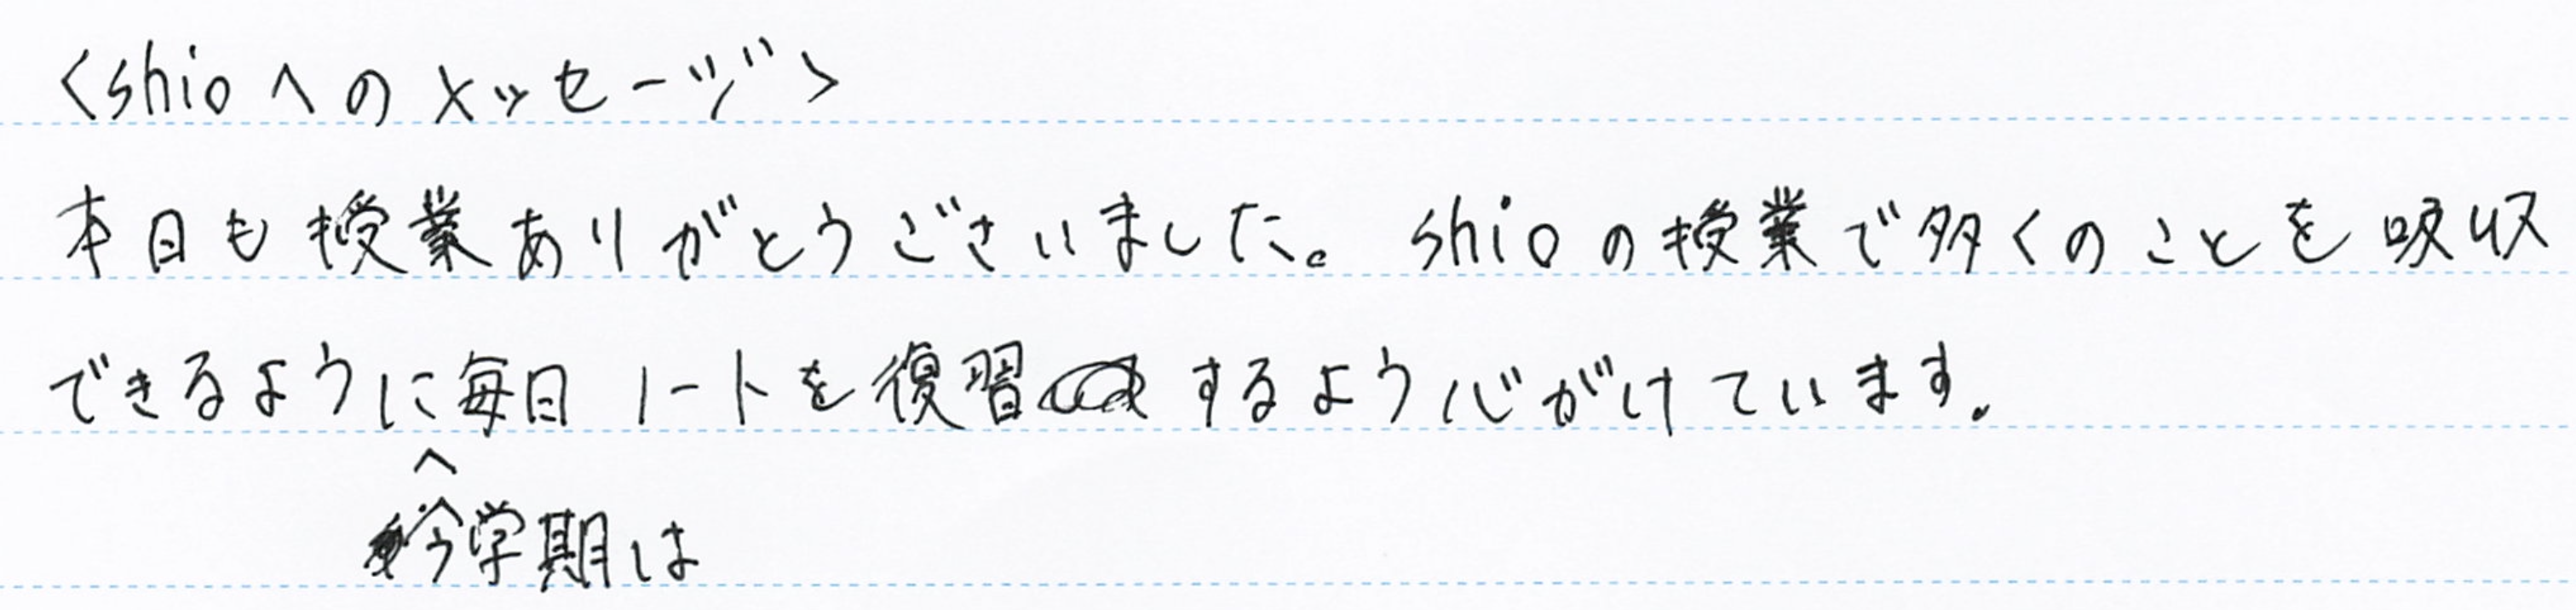 <shioへのメッセージ>
本日も授業ありがとうございました。shioの授業で多くのことを吸収
できるように毎日ノートを復習するよう心がけています。
^
今学期は